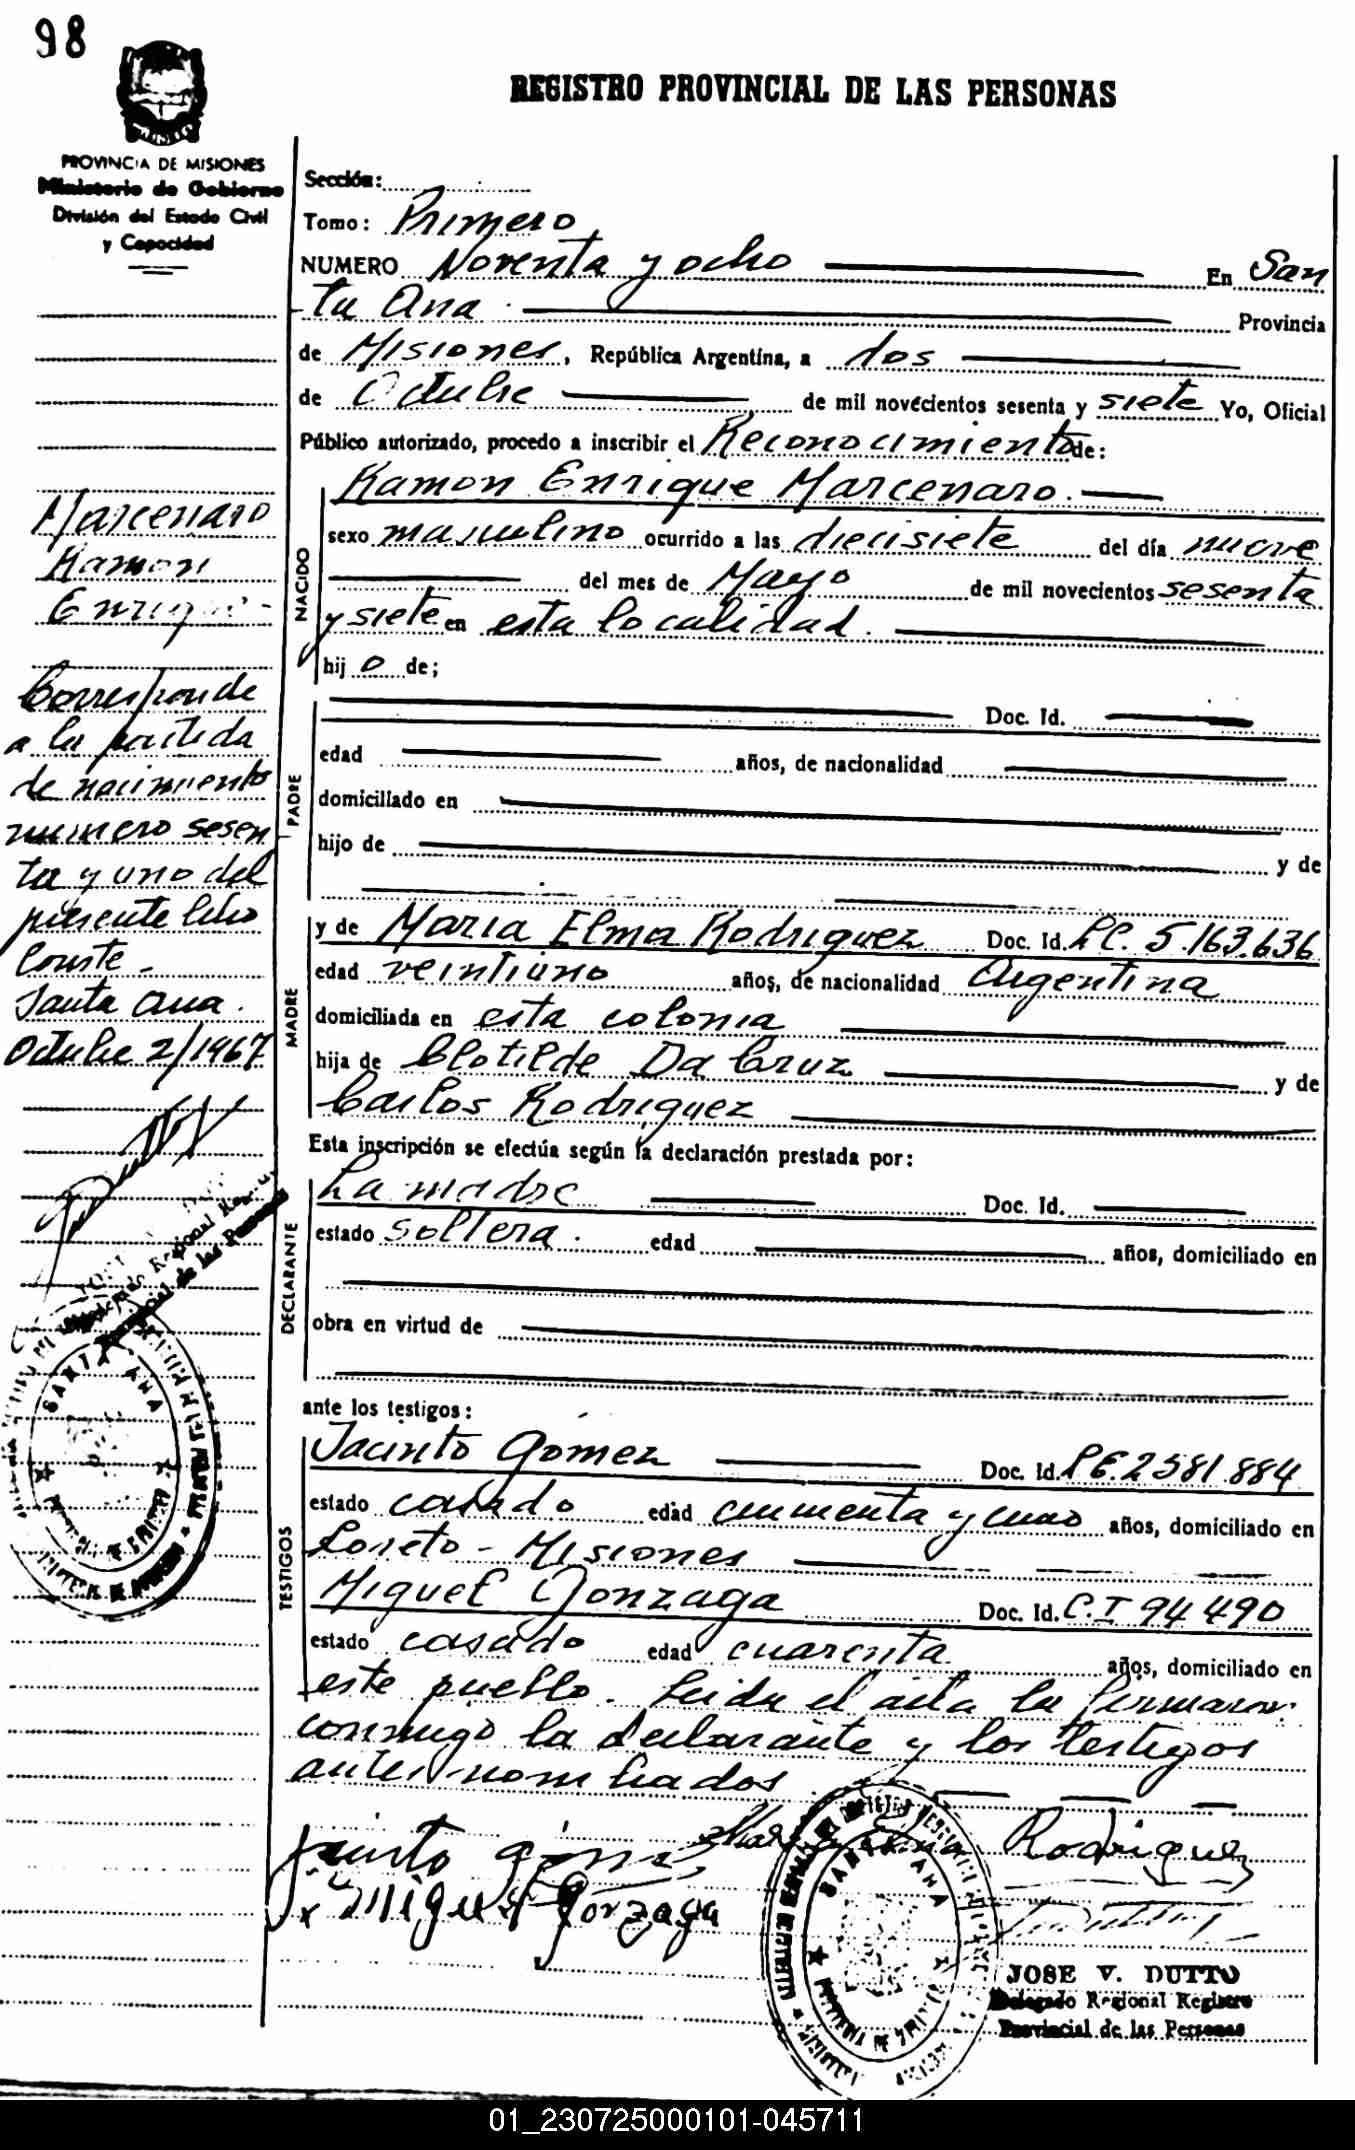 98
REGISTRO PROVINCIAL DE LAS PERSONAS
PROVINCIA DE MISIONES
Ministerio de Gobierno
División del Estado Civil
y Capacidad
Sección:
Tomo: Primero
NUMERO Noventa y ocho En San
ta Ana Provincia
de Misiones, República Argentina, a dos
de Octubre de mil novecientos sesenta y siete Yo, Oficial
Público autorizado, procedo a inscribir el Reconocimiento de:
Ramon Enrique Marcenaro.
NACIDO
sexo masculino ocurrido a las diecisiete del día nueve
del mes de Mayo de mil novecientos sesenta
y siete en esta localidad.
hij o de;
PADRE
Doc. Id.
edad años, de nacionalidad
domiciliado en
hijo de y de
MADRE
y de Maria Elma Rodriguez Doc. Id. LC. 5.163.636
edad veintiuno años, de nacionalidad Argentina
domiciliada en esta colonia
hija de Clotilde Da Cruz y de
Carlos Rodriguez
Esta inscripción se efectúa según la declaración prestada por:
DECLARANTE
La madre Doc. Id.
estado soltera. edad años, domiciliado en
obra en virtud de
ante los testigos:
TESTIGOS
Jacinto Gómez Doc. Id. L.E. 2581.884
estado casado edad años, domiciliado en
Loreto - Misiones
Miguel Gonzaga Doc. Id. C.I 94 490
estado casado edad cuarenta años, domiciliado en
este pueblo. Leida el acta la firmaron
conmigo la declarante y los testigos
antes nombrados
Marcenaro
Ramon
Enrique
Corresponde
a la partida
de nacimiento
numero sesen
ta y uno del
presente libro
Conste -
Santa Ana.
Octubre 2/1967
Regional
de las Personas
SANTA ANA
Jacinto Gómez
Rodriguez
x Miguel Gonzaga
SANTA ANA
JOSE V. DUTTO
Delegado Regional Registro
Provincial de las Personas
01_230725000101-045711